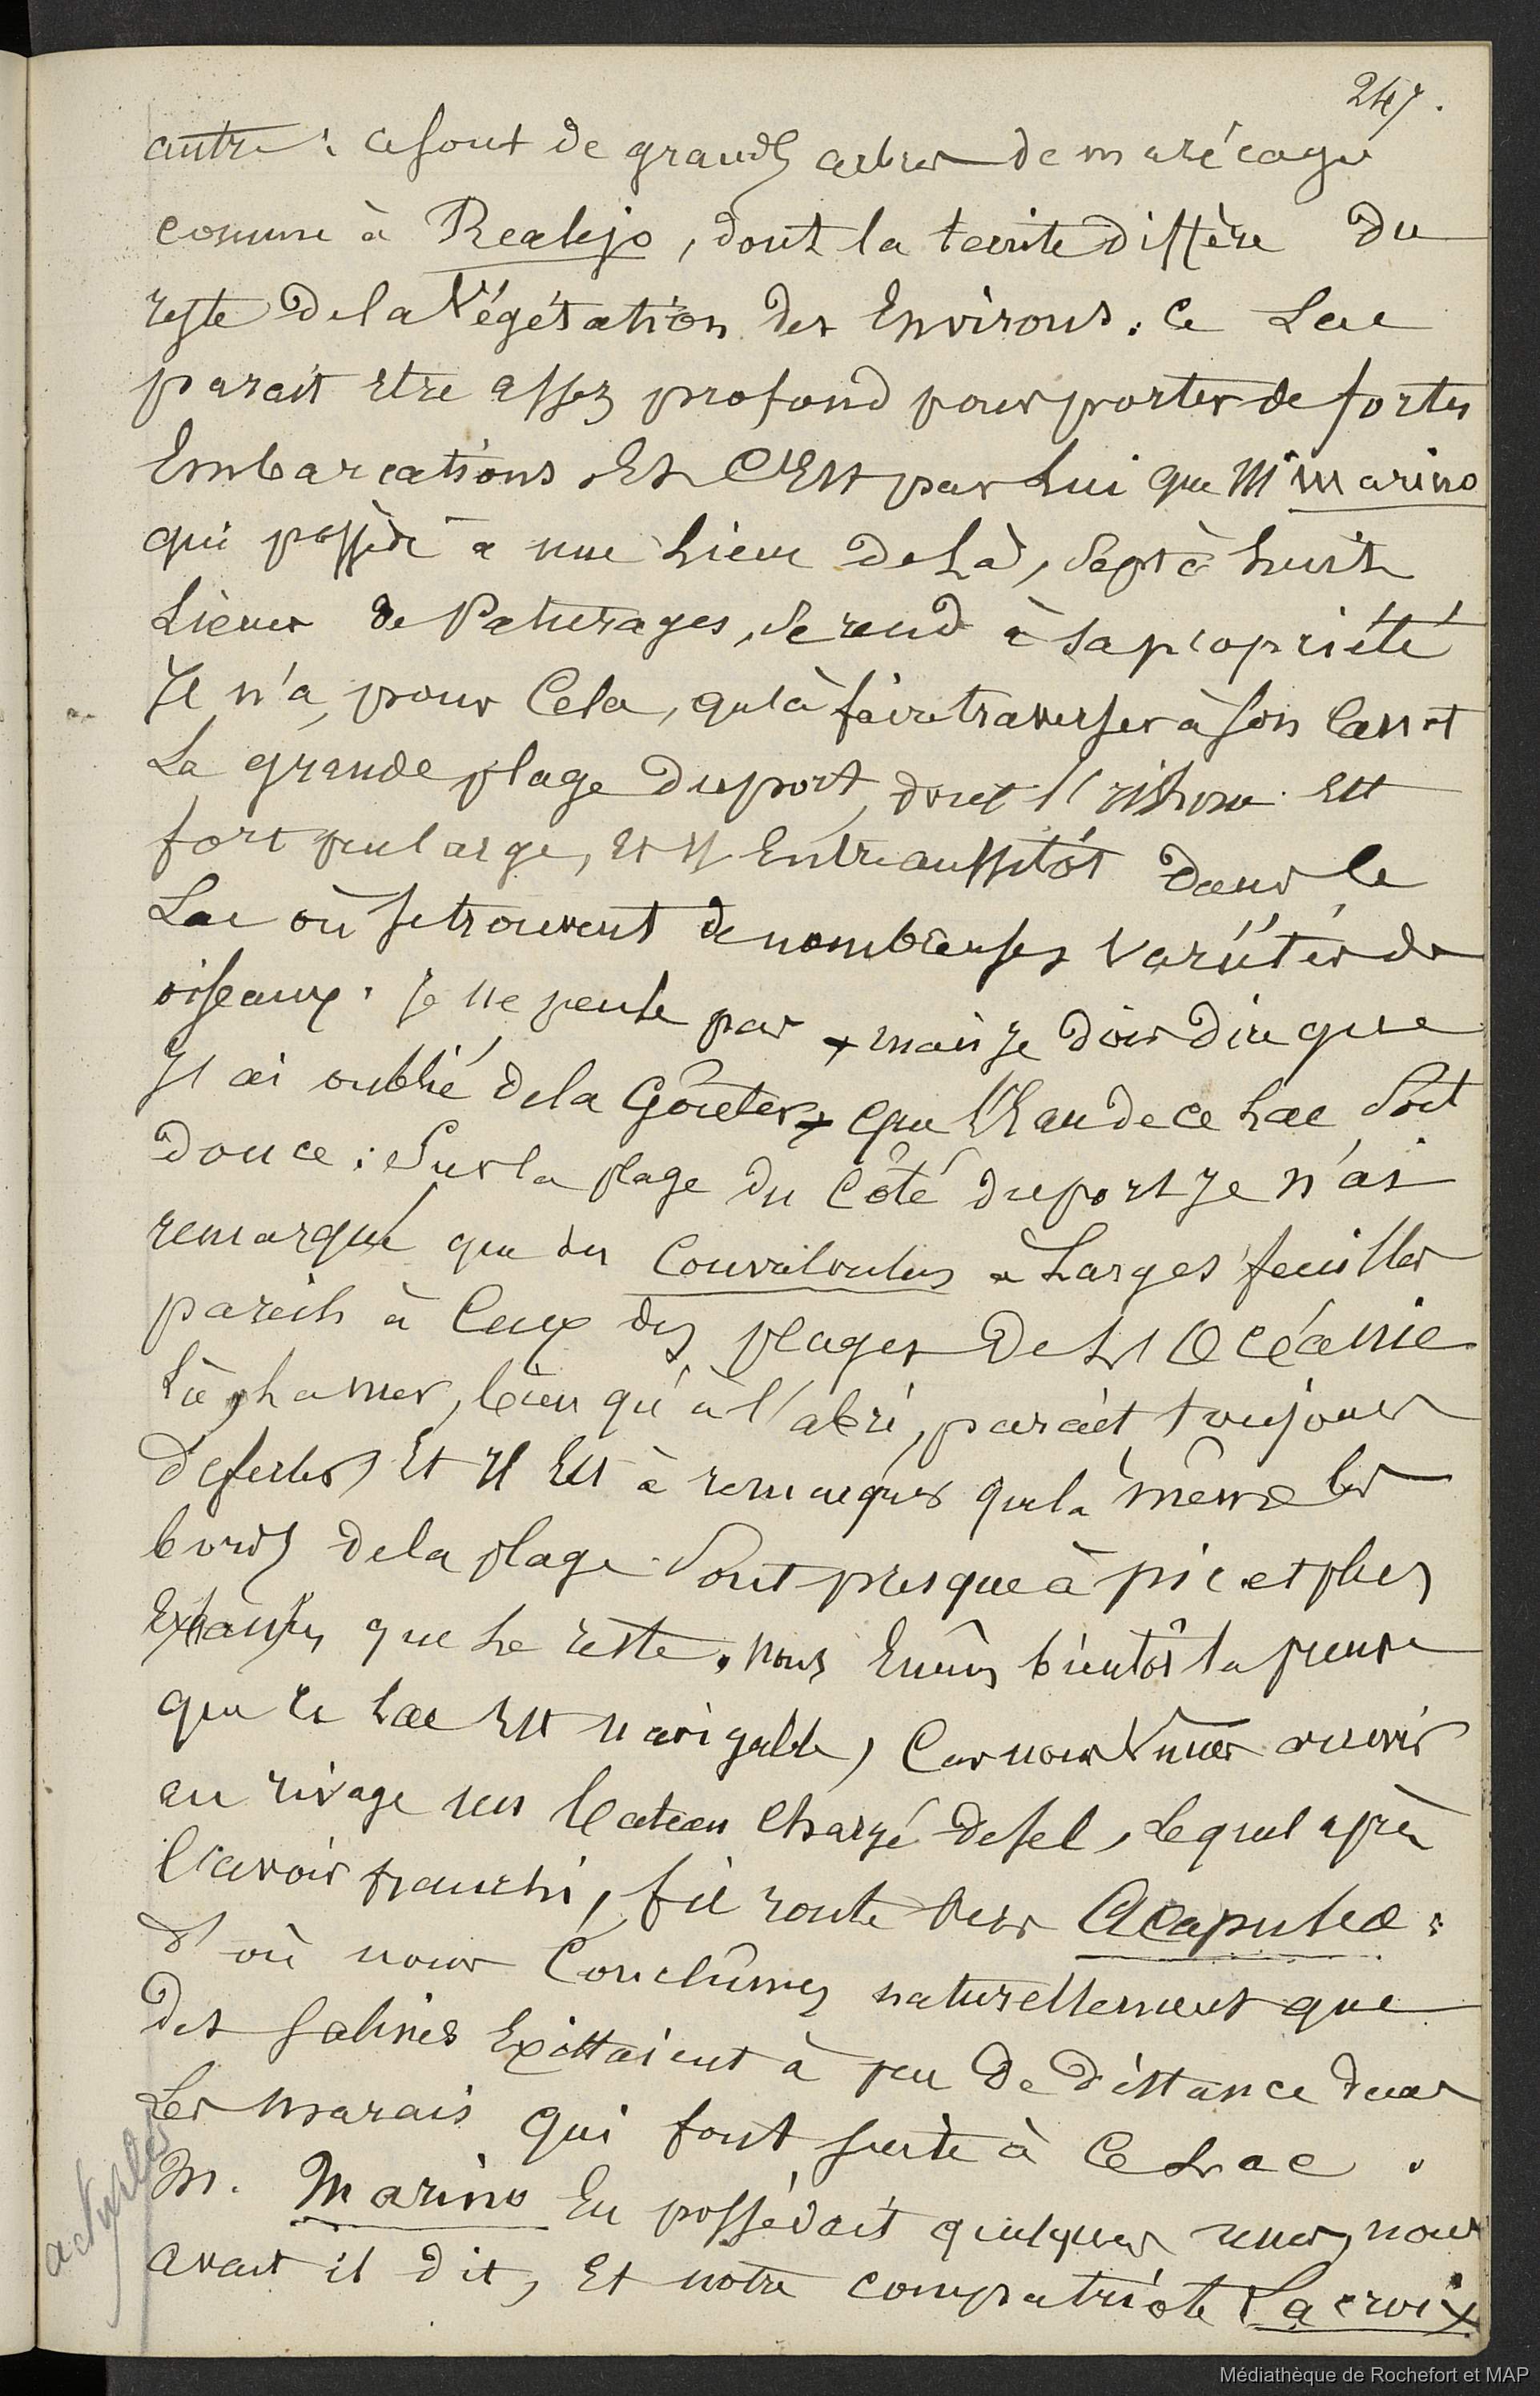 247.
autre : ce sont de grands arbres de marécages
comme à Realejo, dont la teinte diffère du
reste de la Végétation des Environs. Ce Lac
parait etre assez profond pour porter de fortes
Embarcations Et C'Est par Lui que Mr Marino
qui possède à une Lieue de Là, Sept à huit
Lieues de Paturages, se rend à sa propriété
Il n'a, pour Cela, qu'à faire traverser à son Canot
La grande plage du port, dont l'isthme Est
fort peu large, et Il Entre aussitôt dans le
Lac où se trouvent de nombreuses Variétés de
oiseaux. Je ne pense pas + mais je dois dire que
J'ai oublié de la Goûter + que l'Eau de ce Lac Soit
douce : Sur la plage du Côté du port Je n'ai
remarqué que des Convolvulus à Larges feuilles
pareils à Ceux des plages De L'Océanie
Là, La mer, bien qu'à l'abri, parait toujours
déferler, Et Il Est à remarquer que là même les
bords de la plage Sont presque à pic et plus
que Le reste. Nous Eumes bientôt la preuve
que ce Lac Est navigable, Car nous Vimes arriver
au rivage un bateau Chargé de sel, Lequel après
l'avoir franchi, fit route vers Acapulco :
d'où nous Conclûmes naturellement que
des Salines Existaient à peu De distance dans
Les marais qui font suite à Ce Lac.
M. Marino En possédait quelques unes, nous
avait il dit, Et notre compatriote Lacroix
Médiathèque de Rochefort et MAP